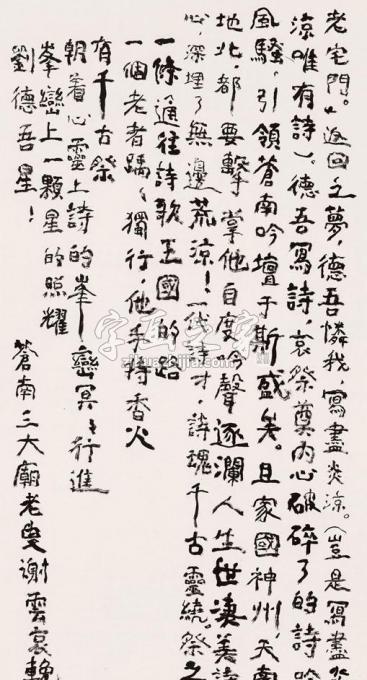 老宅門。返回之夢，德吾憐我，寫盡炎涼。（豈是寫盡炎
涼唯有詩）。德吾寫詩，哀祭奠内心破碎了的詩吟
風騷，引領蒼南吟壇于斯盛矣。且家國神州，天南
地北，都要擊掌他自度吟聲逐瀾人生世淒美詩
心，深埋了無邊荒涼！一代詩才，詩魂千古靈繞。祭之
一條通往詩歌王國的路
一個老者踽踽獨行，他手持香火
有千古祭
朝着心靈上詩的峯巒冥冥行進
峯巒上一顆星的照耀
劉德吾星！
蒼南三大廟老叟謝雲哀輓